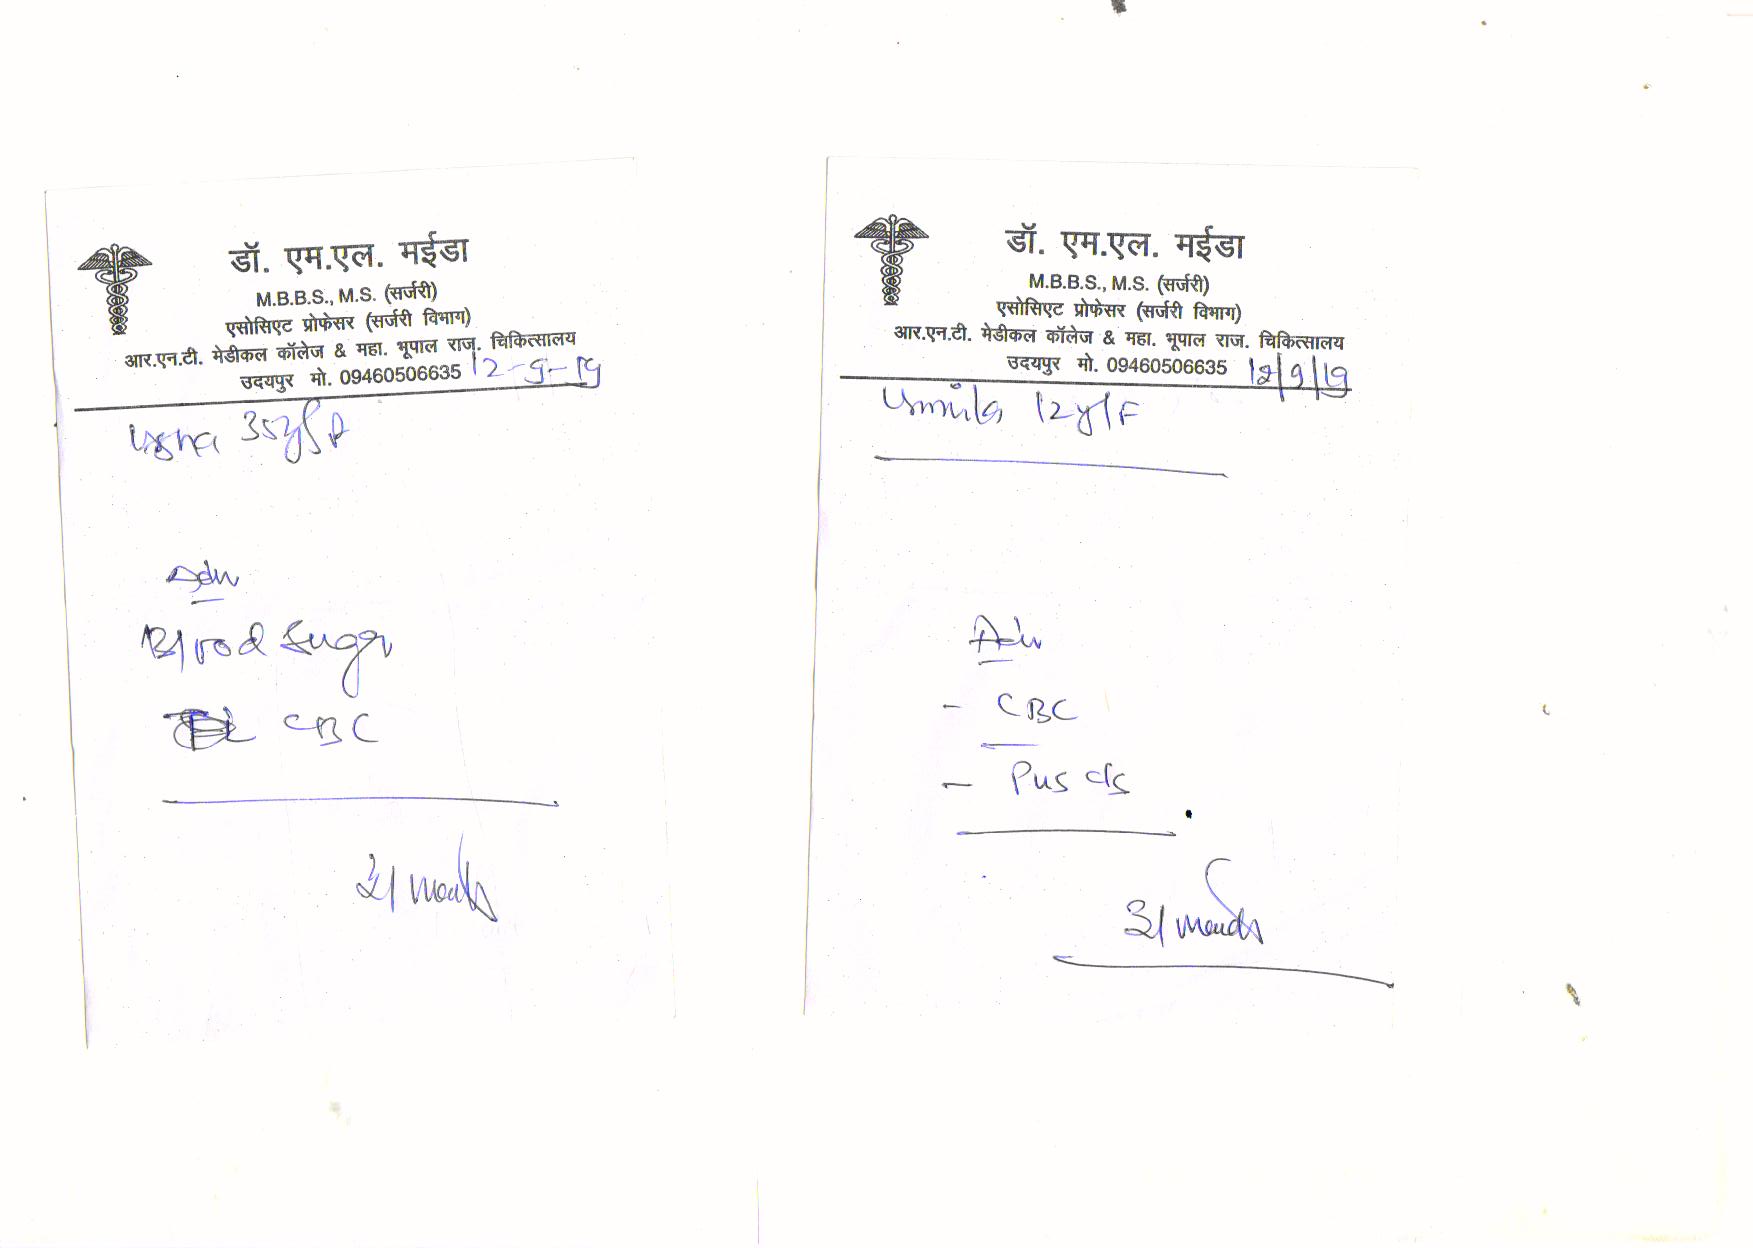 डॉ. एम.एल. मईडा
M.B.B.S., M.S. (सर्जरी)
एसोसिएट प्रोफेसर (सर्जरी विभाग)
आर.एन.टी. मेडीकल कॉलेज & महा. भूपाल राज. चिकित्सालय
उदयपुर मो. 09460506635 12-9-19
Usha 35y/F
Adv
Blood Sugar
CBC
डॉ. एम.एल. मईडा
M.B.B.S., M.S. (सर्जरी)
एसोसिएट प्रोफेसर (सर्जरी विभाग)
आर.एन.टी. मेडीकल कॉलेज & महा. भूपाल राज. चिकित्सालय
उदयपुर मो. 09460506635 12/9/19
Urmila 12y/F
Adv
- CBC
- Pus c/s